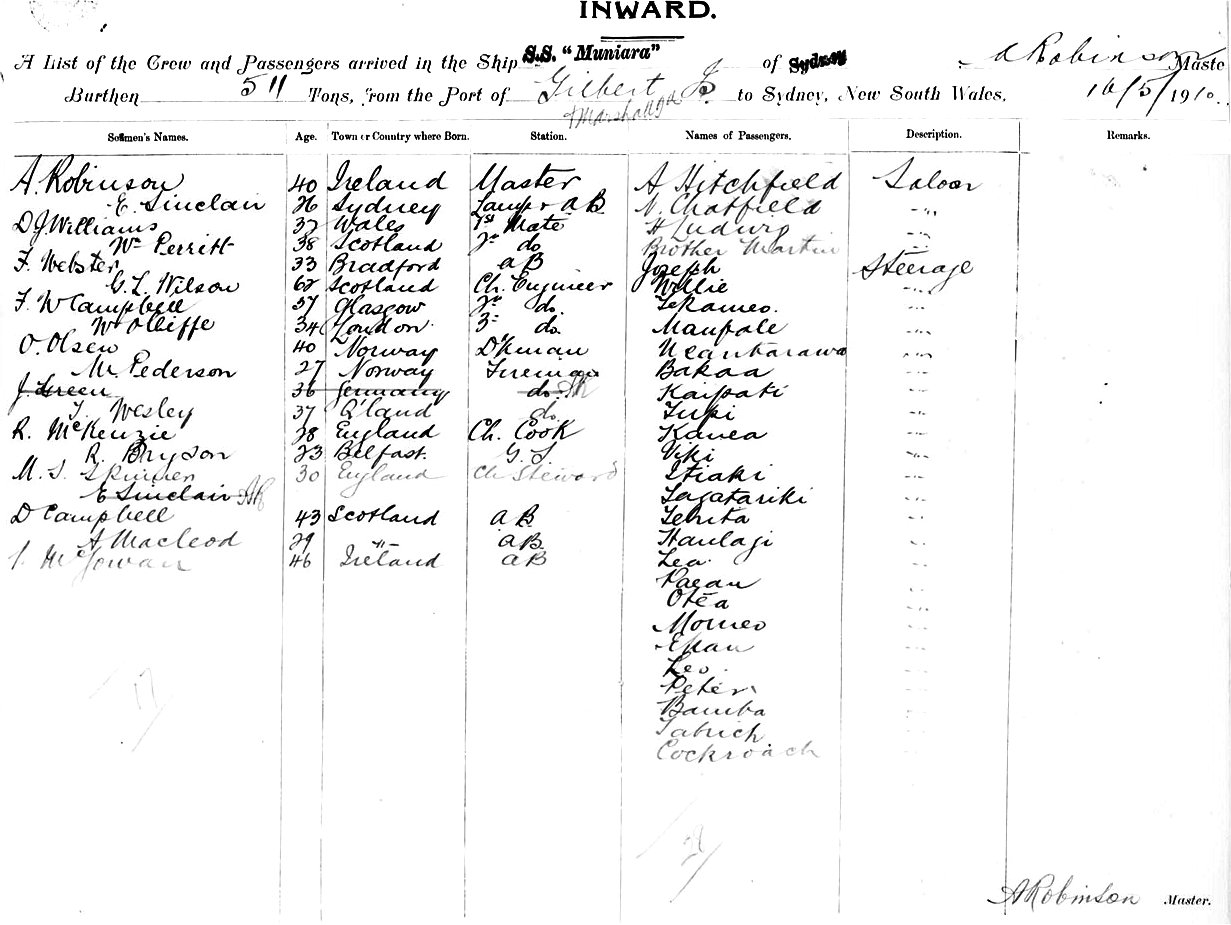 INWARD.
A List of the Crew and Passengers arrived in the Ship S.S. "Muniara" of Sydney A Robinson Maste
Burthen 511 Tons, from the Port of Gilbert Is to Sydney, New South Wales, 16/5/1910.
+ Marshall
Seamen's Names. Age. Town or Country where Born. Station. Names of Passengers. Description. Remarks.
A. Robinson 40 Ireland Master A Hitchfield Saloon
E. Sinclair 26 Sydney Lamp + AB N. Chatfield -"-
D J Williams 37 Wales 1st Mate H Ludwig -"-
Wm Perritt 38 Scotland 2n do Brother Martin
F. Webster 33 Bradford aB Joseph Steerage
G. L. Wilson 62 Scotland Ch. Engineer Willie -"-
F W Campbell 57 Glasgow 2n do. Tekameo. -"-
W Olliffe 34 London 3= do. Maupale -"-
O. Olsen 40 Norway D'kman -"-
M. Pederson 27 Norway Fireman Bakaa -"-
J. Green 36 Germany do. AR Kaipati -"-
T. Wesley 37 Q'land do. Tupi -"-
R. McKenzie 28 England Ch. Cook Kanea -"-
R. Bryson 23 Belfast. G.S Viki -"-
M. S. Skinner 30 England Ch Steward Itiaki -"-
E Sinclair AR Tagatariki -"-
D Campbell 43 Scotland aB Tebita -"-
A Macleod 29 -"- aB. Haulagi -"-
McGowan 46 Ireland aB Lea. -"-
Paeau -"-
Otea -"-
Momeo -"-
Ekau -"-
Leo. -"-
Peter -"-
Bamba -"-
Tabrich -"-
Cockroach -"-
17
28
A Robinson Master.